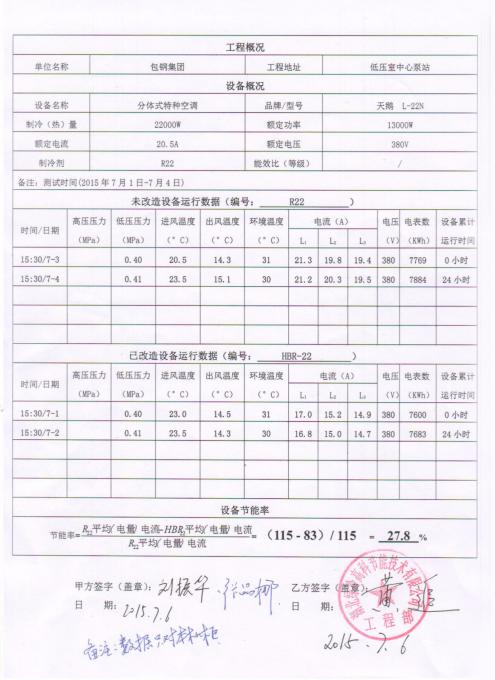 工程概况
单位名称 包钢集团 工程地址 低压室中心泵站
设备概况
设备名称 分体式特种空调 品牌/型号 天鹅 L-22N
制冷（热）量 22000W 额定功率 13000W
额定电流 20.5A 额定电压 380V
制冷剂 R22 能效比（等级） /
备注：测试时间(2015年7月1日-7月4日)
未改造设备运行数据（编号： R22 ）
时间/日期 高压压力（MPa） 低压压力（MPa） 进风温度（°C） 出风温度（°C） 环境温度（°C） 电流（A） L₁ L₂ L₃ 电压（V） 电表数（KWh） 设备累计运行时间
15:30/7-3 0.40 20.5 14.3 31 21.3 19.8 19.4 380 7769 0小时
15:30/7-4 0.41 23.5 15.1 30 21.2 20.3 19.5 380 7884 24小时
已改造设备运行数据（编号： HBR-22 ）
时间/日期 高压压力（MPa） 低压压力（MPa） 进风温度（°C） 出风温度（°C） 环境温度（°C） 电流（A） L₁ L₂ L₃ 电压（V） 电表数（KWh） 设备累计运行时间
15:30/7-1 0.40 23.0 14.5 31 17.0 15.2 14.9 380 7600 0小时
15:30/7-2 0.41 23.5 14.3 30 16.8 15.0 14.7 380 7683 24小时
设备节能率
节能率= R₂₂平均(电量/电流-HBR₂平均(电量/电流 / R₂₂平均(电量/电流 = (115-83)/115 = 27.8 %
甲方签字（盖章）：刘振华
乙方签字（盖章）：
日 期：2015.7.6
日 期：2015.7.6
备注：数据只对本机柜
高科节能技术有限公司
工程部